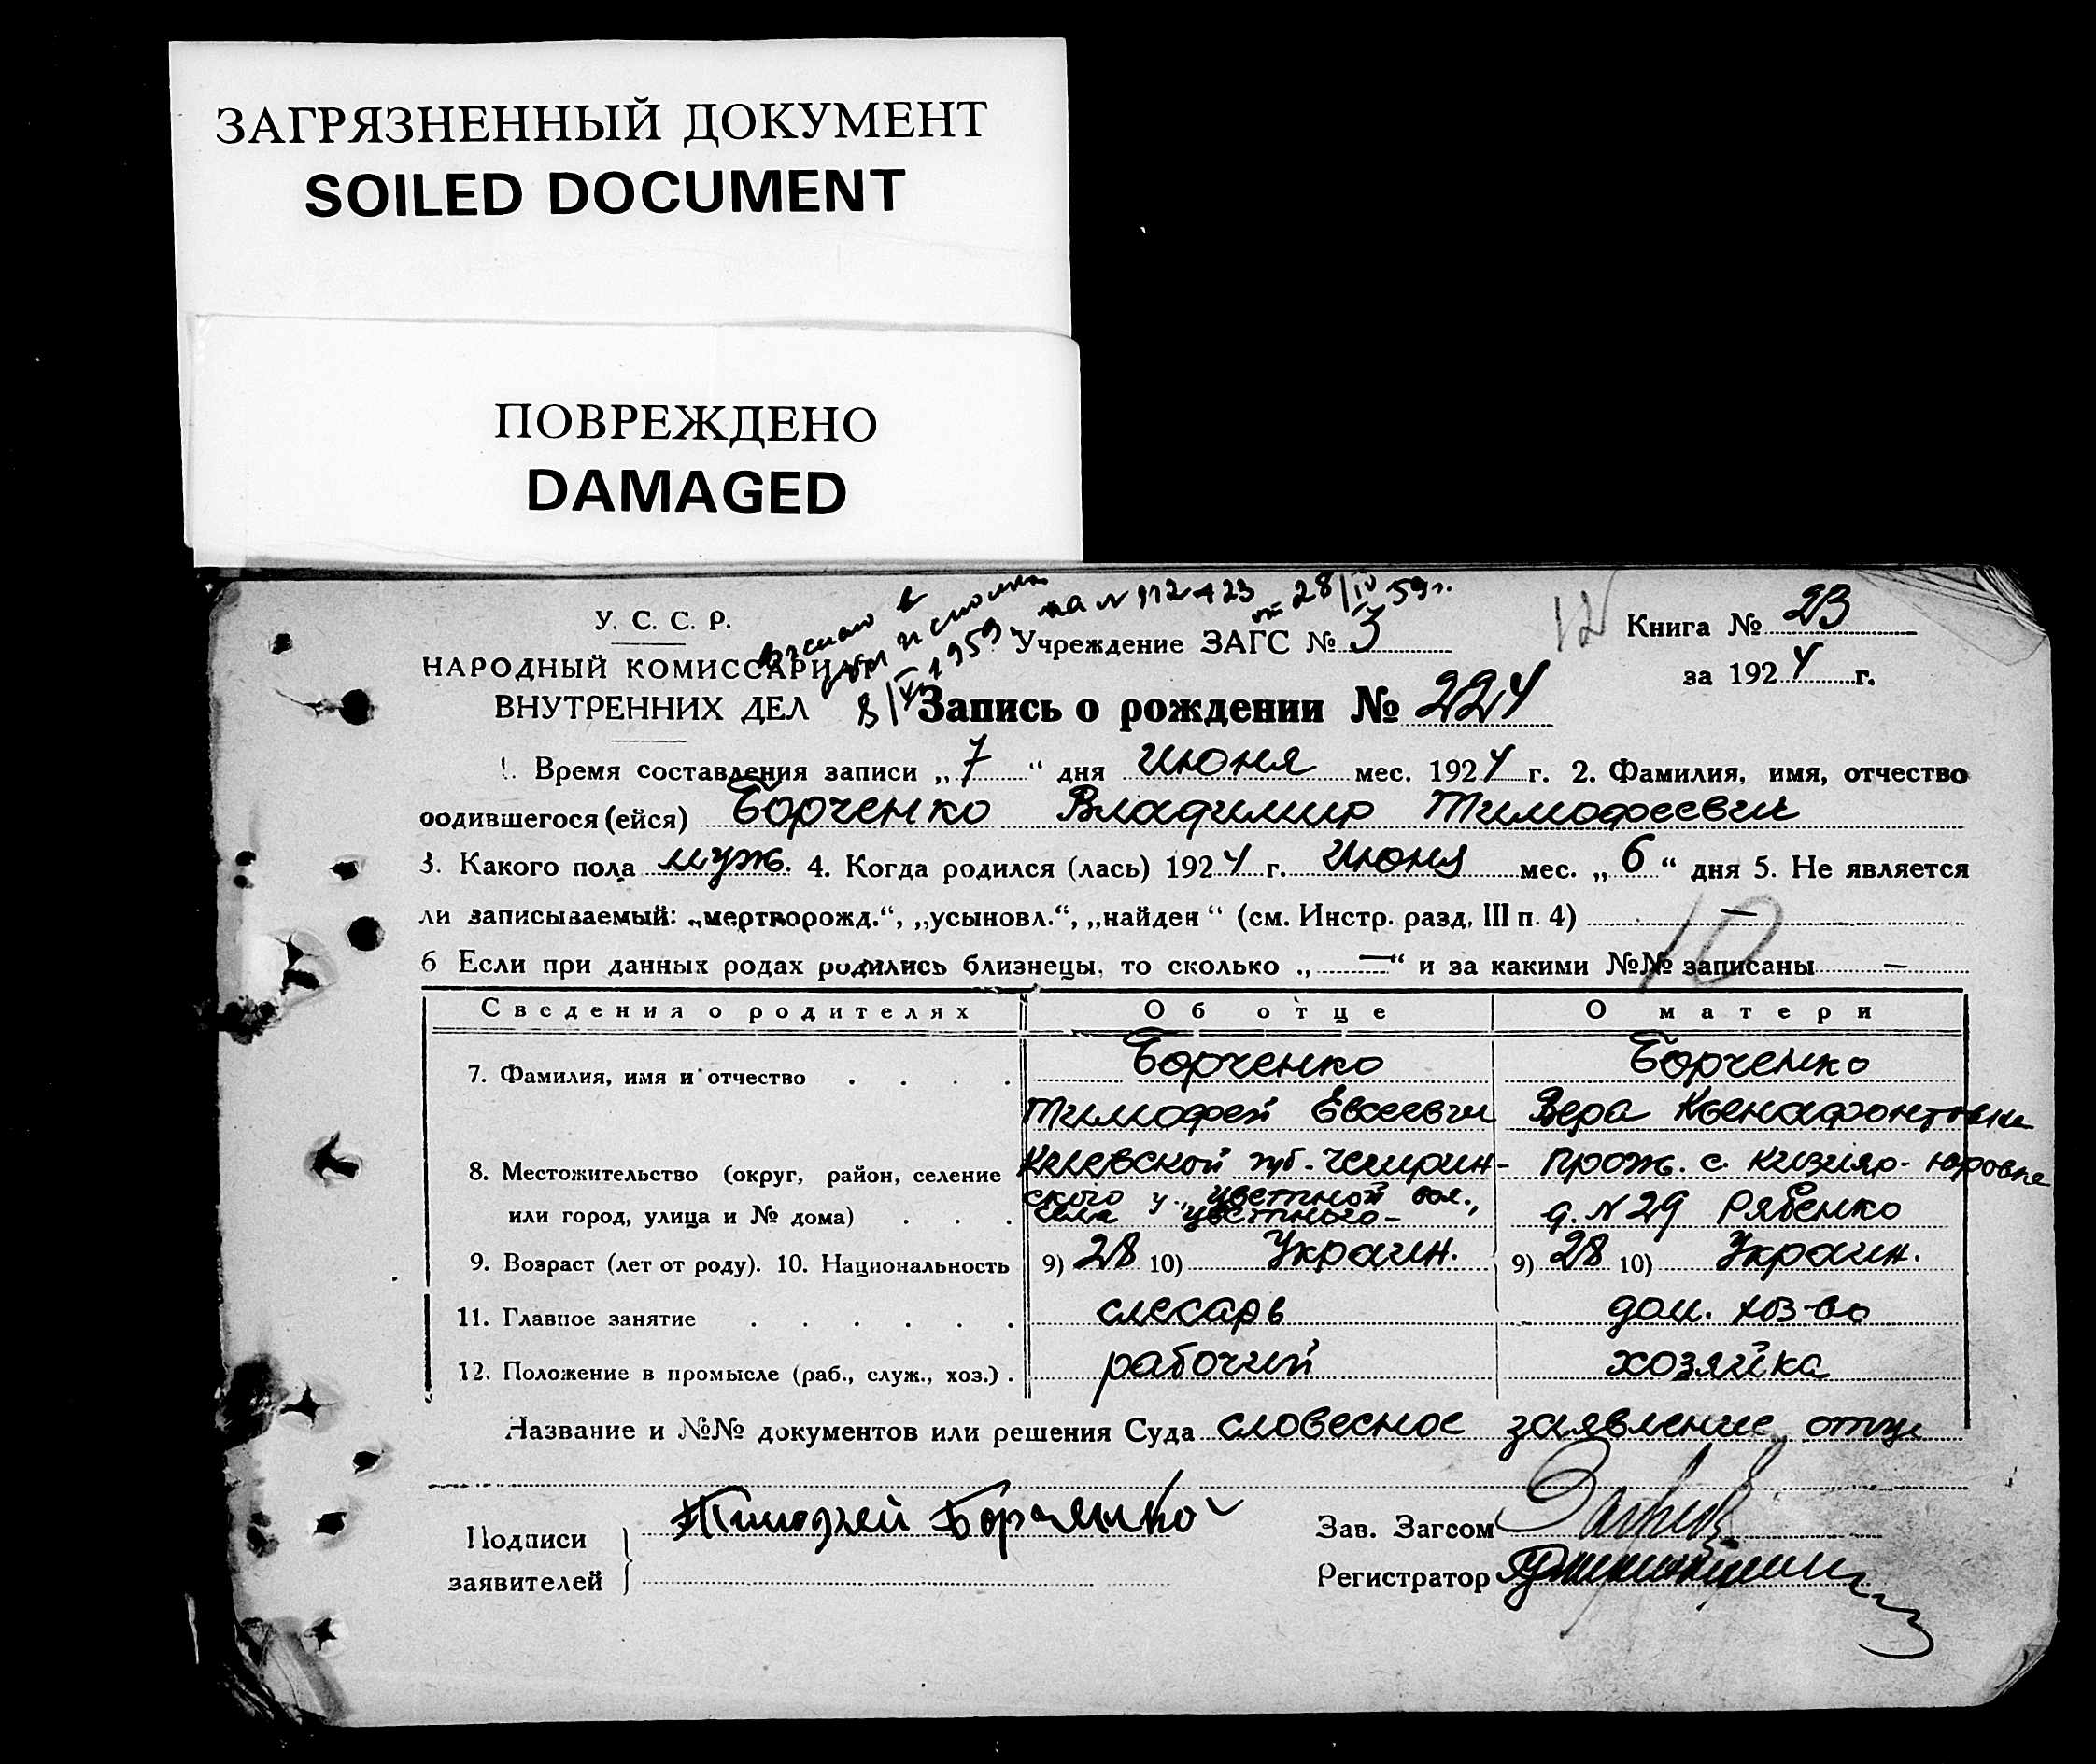 ЗАГРЯЗНЕННЫЙ ДОКУМЕНТ
SOILED DOCUMENT
ПОВРЕЖДЕНО
DAMAGED
на № 112423 от 28/IV 59 г.
12
У. С. С. Р.
Учреждение ЗАГС № 3
Книга № 23
НАРОДНЫЙ КОМИССАРИАТ
за 1924 г.
ВНУТРЕННИХ ДЕЛ
Запись о рождении № 224
1. Время составления записи „7“ дня июня мес. 1924 г. 2. Фамилия, имя, отчество
родившегося (ейся) Борченко Владимир Тимофеевич
3. Какого пола муж. 4. Когда родился (лась) 1924 г. июня мес. „6“ дня 5. Не является
ли записываемый: „мертворожд.“, „усыновл.“, „найден“ (см. Инстр. разд. III п. 4) —
10
6 Если при данных родах родились близнецы, то сколько „—“ и за какими №№ записаны —
Сведения о родителях Об отце О матери
7. Фамилия, имя и отчество . . . . Борченко Борченко
Тимофей Евсеевич Вера Ксенофонтовна
8. Местожительство (округ, район, селение Киевской губ. Чигирин- прож. с. Кизияр-
ского у., Цветной вол.,
или город, улица и № дома) . . . села Цветного- д. № 29 Рябенко
9. Возраст (лет от роду). 10. Национальность 9) 28 10) Украин. 9) 28 10) Украин.
11. Главное занятие . . . . . . слесарь дом. хоз-во
12. Положение в промысле (раб., служ., хоз.) . рабочий хозяйка
Название и №№ документов или решения Суда словесное заявление отца
Подписи Тимофей Борченко Зав. Загсом
заявителей Регистратор